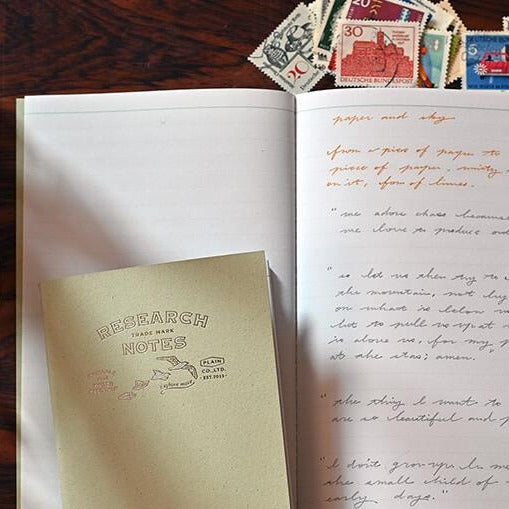 30
DEUTSCHE BUNDESPOST
20
RESEARCH
TRADE MARK
NOTES
PLAIN
CO.,LTD.
EST.2015
explore more
paper and sky
from a piece of paper to
piece of paper,
on it, form of lines.
"we adore chaos because
we love to produce
"so let us then try to
the mountain, not by
on what is below
but to pull us up at
is above us, for my
at the stars; amen."
"the thing I want to
are so beautiful and
"I don't grow up. In me
the small child of
early days."